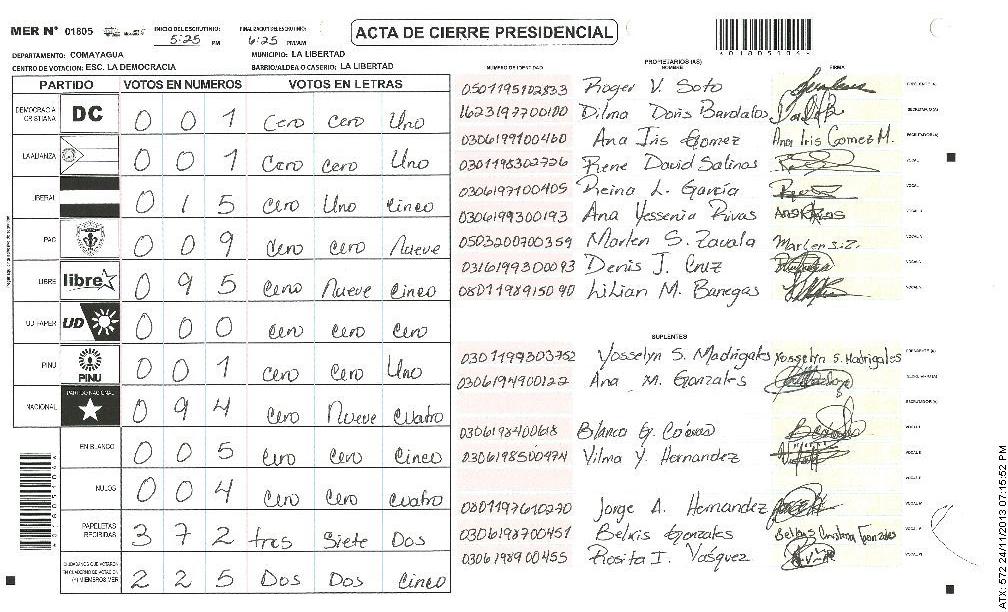 MER Nº 01805
INICIO DEL ESCRUTINIO: 5:25 PM
FINALIZACION DEL ESCRUTINIO: 6:25 PM/AM
ACTA DE CIERRE PRESIDENCIAL
DEPARTAMENTO: COMAYAGUA
MUNICIPIO: LA LIBERTAD
CENTRO DE VOTACION: ESC. LA DEMOCRACIA
BARRIO/ALDEA O CASERIO: LA LIBERTAD
PARTIDO VOTOS EN NUMEROS VOTOS EN LETRAS
DEMOCRACIA CRISTIANA DC 0 0 1 Cero Cero Uno
LA ALIANZA 0 0 1 Cero Cero Uno
LIBERAL 0 1 5 Cero Uno Cinco
PAC 0 0 9 Cero Cero Nueve
LIBRE libre 0 9 5 Cero Nueve Cinco
UD FAPER UD 0 0 0 Cero Cero Cero
PINU PINU 0 0 1 Cero Cero Uno
NACIONAL PARTIDO NACIONAL 0 9 4 Cero Nueve Cuatro
EN BLANCO 0 0 5 Cero Cero Cinco
NULOS 0 0 4 Cero Cero Cuatro
PAPELETAS RECIBIDAS 3 7 2 tres Siete Dos
CIUDADANOS QUE VOTARON EN CUADERNO DE VOTACION (+) MIEMBROS MER 2 2 5 Dos Dos Cinco
PROPIETARIOS (AS)
NUMERO DE IDENTIDAD NOMBRE FIRMA
0501195102833 Roger V. Soto
1623197700100 Dilma Doris Bardalos
0306199100460 Ana Iris Gomez Ana Iris Gomez M.
0301198302726 Rene David Salinas
0306197100405 Reina L. García
0306199300193 Ana Yessenia Rivas
0503200700359 Marlen S. Zavala Marlen S. Z.
0316199300093 Denis J. Cruz
0801198915090 Lilian M. Banegas
SUPLENTES
0301199303752 Yosselyn S. Madrigales Yosselyn S. Madrigales
0306194900122 Ana M. Gonzales
0306198400618 Blanca
0306198500474 Vilma Y. Hernandez
0801197610270 Jorge A. Hernandez
0306198700451 Belkis Gonzales
0306198900455 Rosita I. Vásquez
ATX: 572 24/11/2013 07:15:52 PM